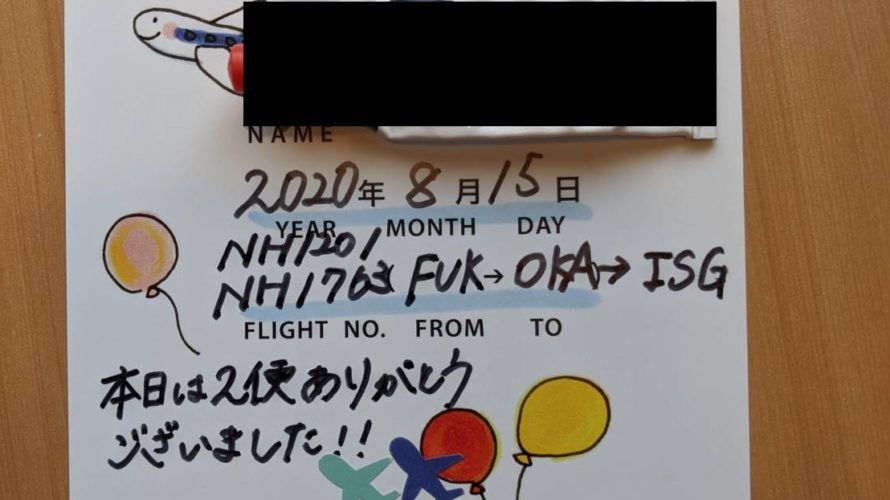 NAME
2020年 8月15日
YEAR MONTH DAY
NH1201
NH1763 FUK→OKA→ISG
FLIGHT NO. FROM TO
本日は2便ありがとう
ございました!!